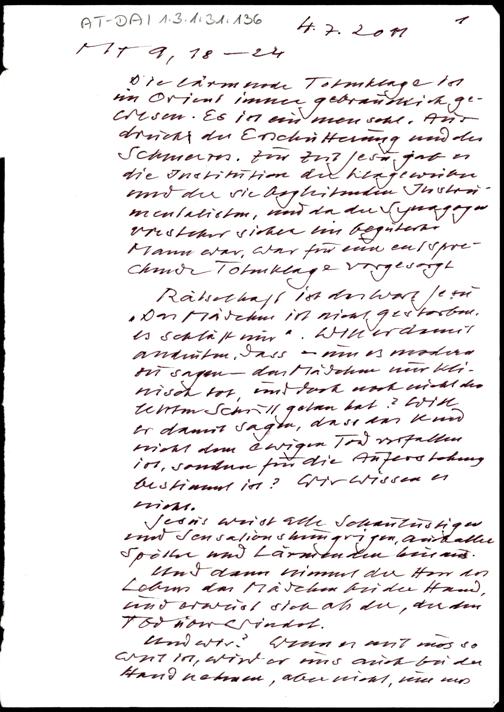 AT-DAI 1.3.1.31.136
4.7.2011
1
Mt 9, 18-24
Die lärmende Totenklage ist
im Orient immer gebräuchlich ge-
wesen. Es ist ein menschl. Aus-
druck der Erschütterung und des
Schmerzes. Zur Zeit Jesu gab es
die Institution der Klageweiber
und der sie begleitenden Instru-
mentalisten, und da der Synagogen
vorsteher sicher ein begüterter
Mann war, war für eine entspre-
chende Totenklage vorgesorgt
Rätselhaft ist das Wort Jesu
"Das Mädchen ist nicht gestorben,
es schläft nur". Will er damit
andeuten, dass - um es modern
zu sagen - das Mädchen nur kli-
nisch tot, und doch noch nicht den
letzten Schritt getan hat? Will
er damit sagen, dass das Kind
nicht dem ewigen Tod verfallen
ist, sondern für die Auferstehung
bestimmt ist? Wir wissen es
nicht.
Jesus weist alle Schaulustigen
und Sensationshungrigen, und alle
Spötter und Lärmenden hinaus.
Und dann nimmt der Herr des
Lebens das Mädchen bei der Hand,
und erweist sich als der, der den
Tod überwindet.
Und wir? Wenn es mit uns so
weit ist, wird er uns auch bei der
Hand nehmen, aber nicht, um uns